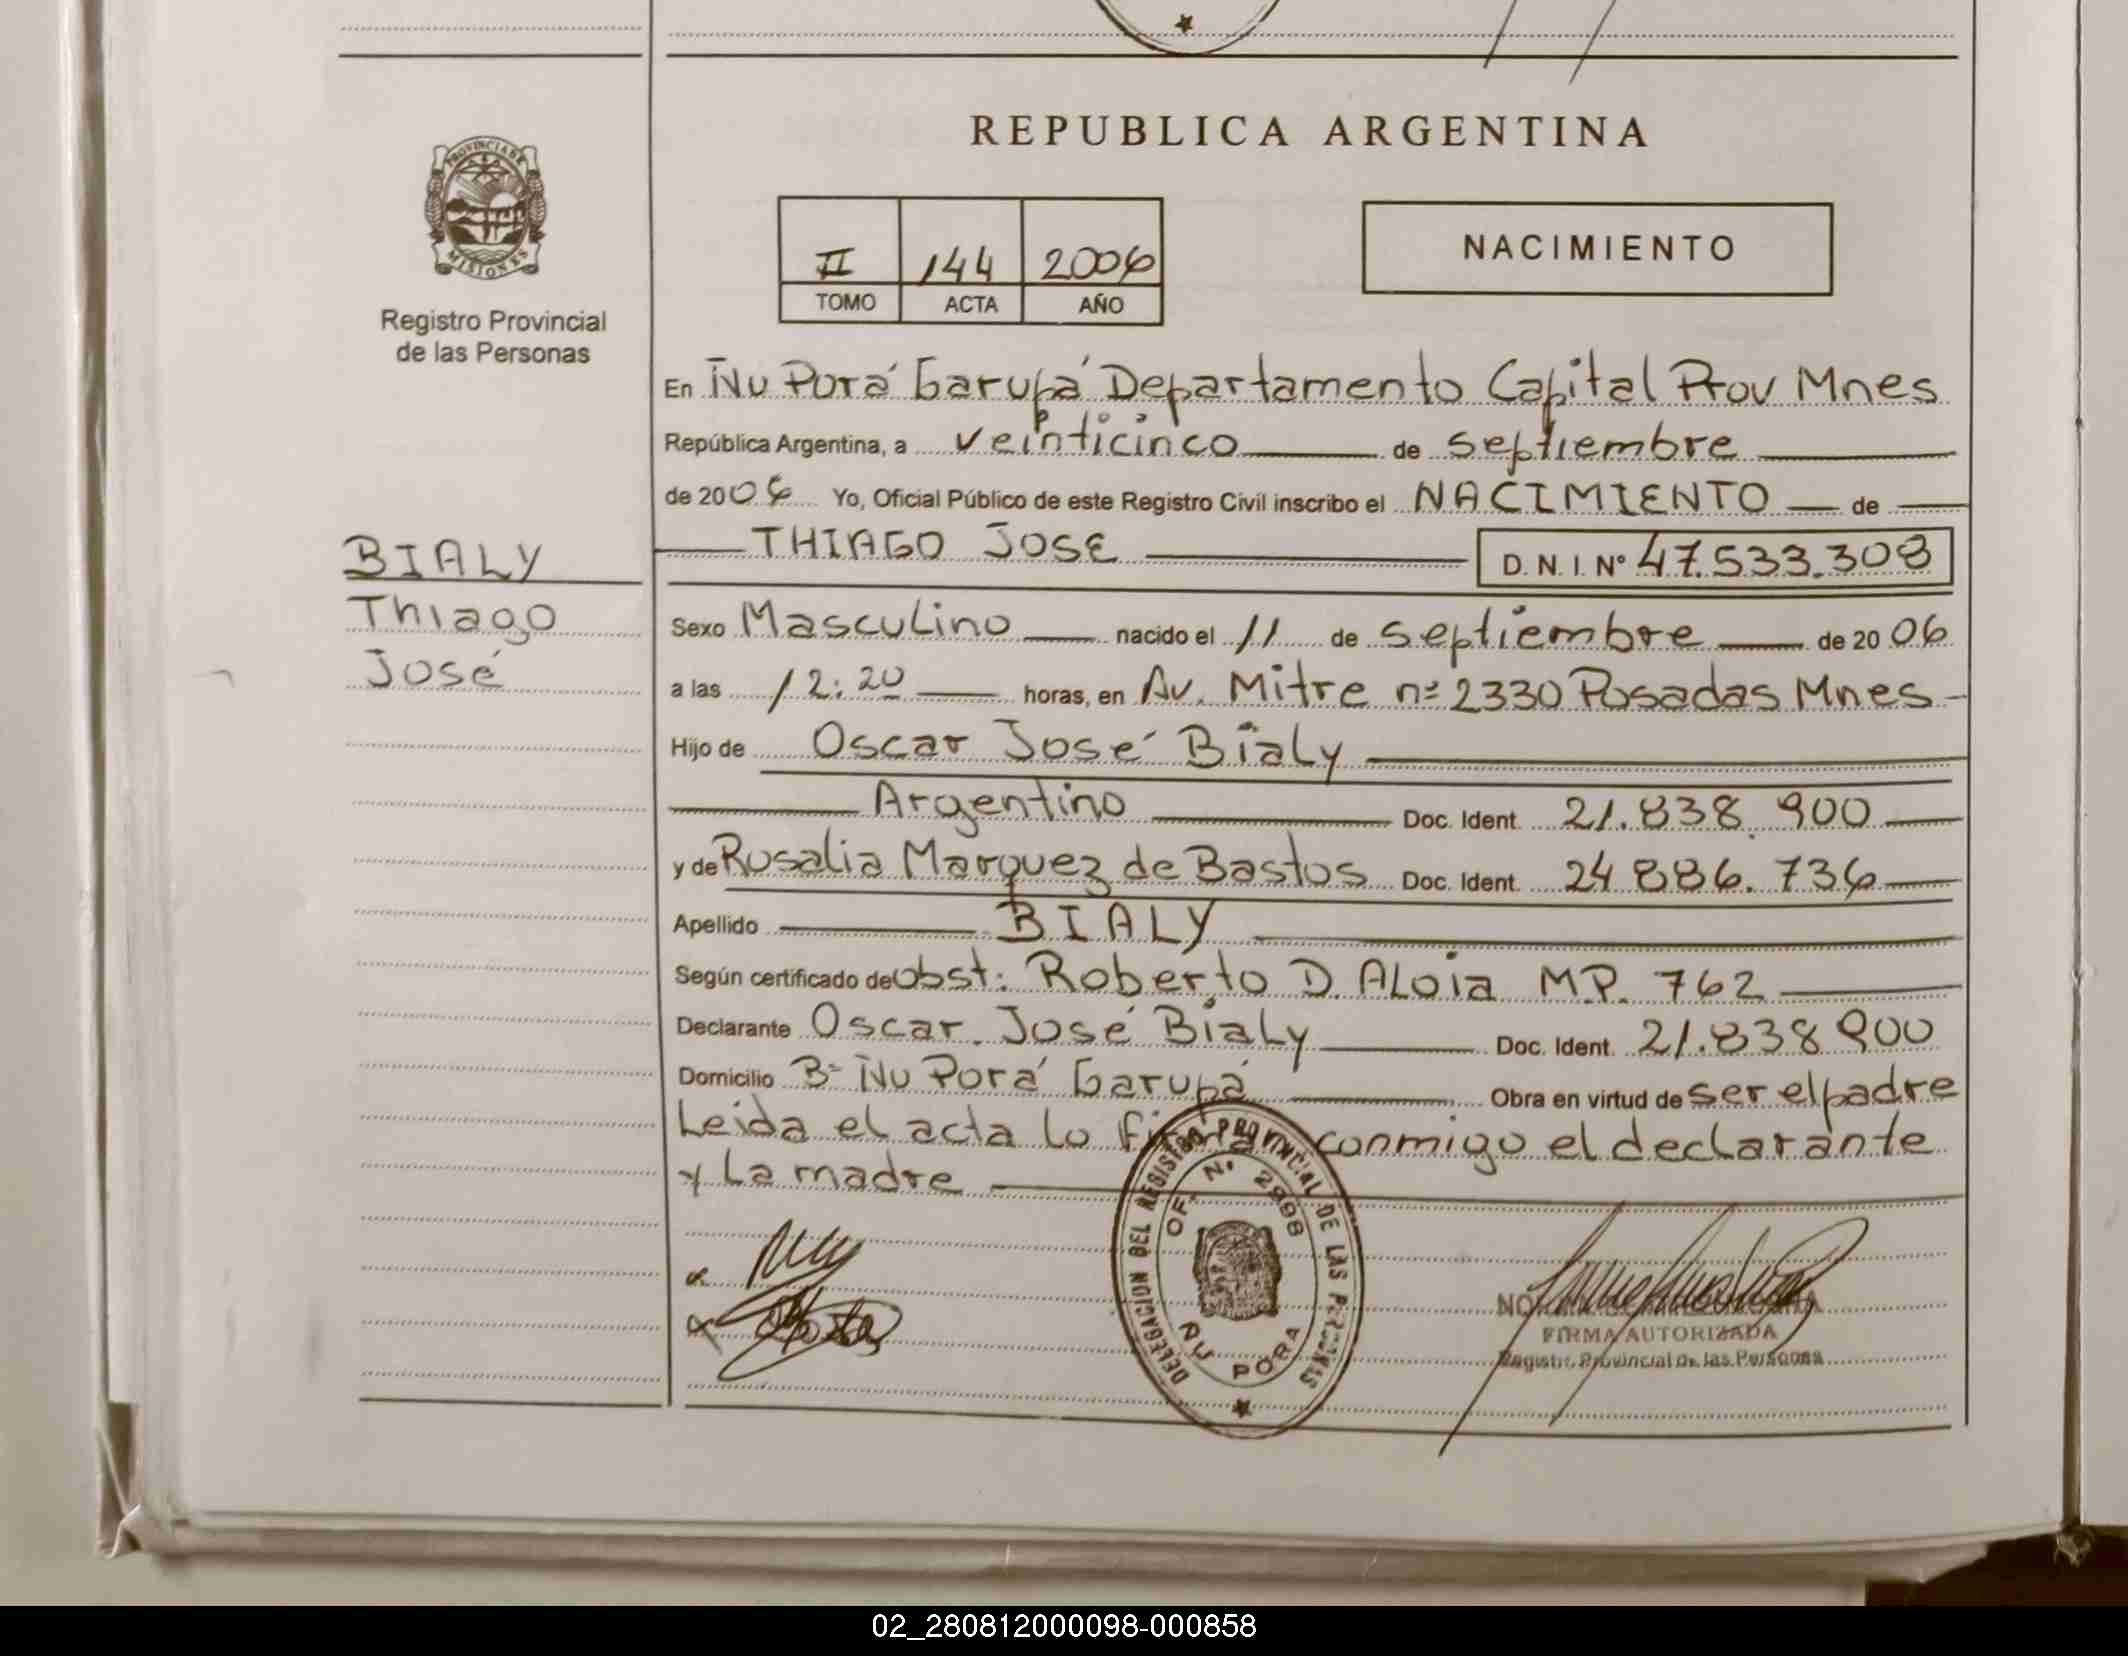 REPUBLICA ARGENTINA
PROVINCIA DE MISIONES
Registro Provincial
de las Personas
II 144 2006
TOMO ACTA AÑO
NACIMIENTO
En Ñu Porá Garupá Departamento Capital Prov Mnes
República Argentina, a veinticinco de septiembre
de 2006 Yo, Oficial Público de este Registro Civil inscribo el NACIMIENTO de
THIAGO JOSE D.N.I. Nº 47.533.308
BIALY
Thiago
José
Sexo Masculino nacido el 11 de septiembre de 2006
a las 12:20 horas, en Av. Mitre nº 2330 Posadas Mnes
Hijo de Oscar José Bialy
Argentino Doc. Ident. 21.838.900
y de Rosalia Marquez de Bastos Doc. Ident. 24.886.736
Apellido BIALY
Según certificado de Obst: Roberto D. Aloia M.P. 762
Declarante Oscar José Bialy Doc. Ident. 21.838.900
Domicilio Bº Ñu Porá Garupá Obra en virtud de ser el padre
Leida el acta lo firma conmigo el declarante
y la madre
DELEGACION DEL REGISTRO PROVINCIAL DE LAS PERSONAS
OF. N. 2998
ÑU PORA
FIRMA AUTORIZADA
Registro Provincial de las Personas
02_280812000098-000858